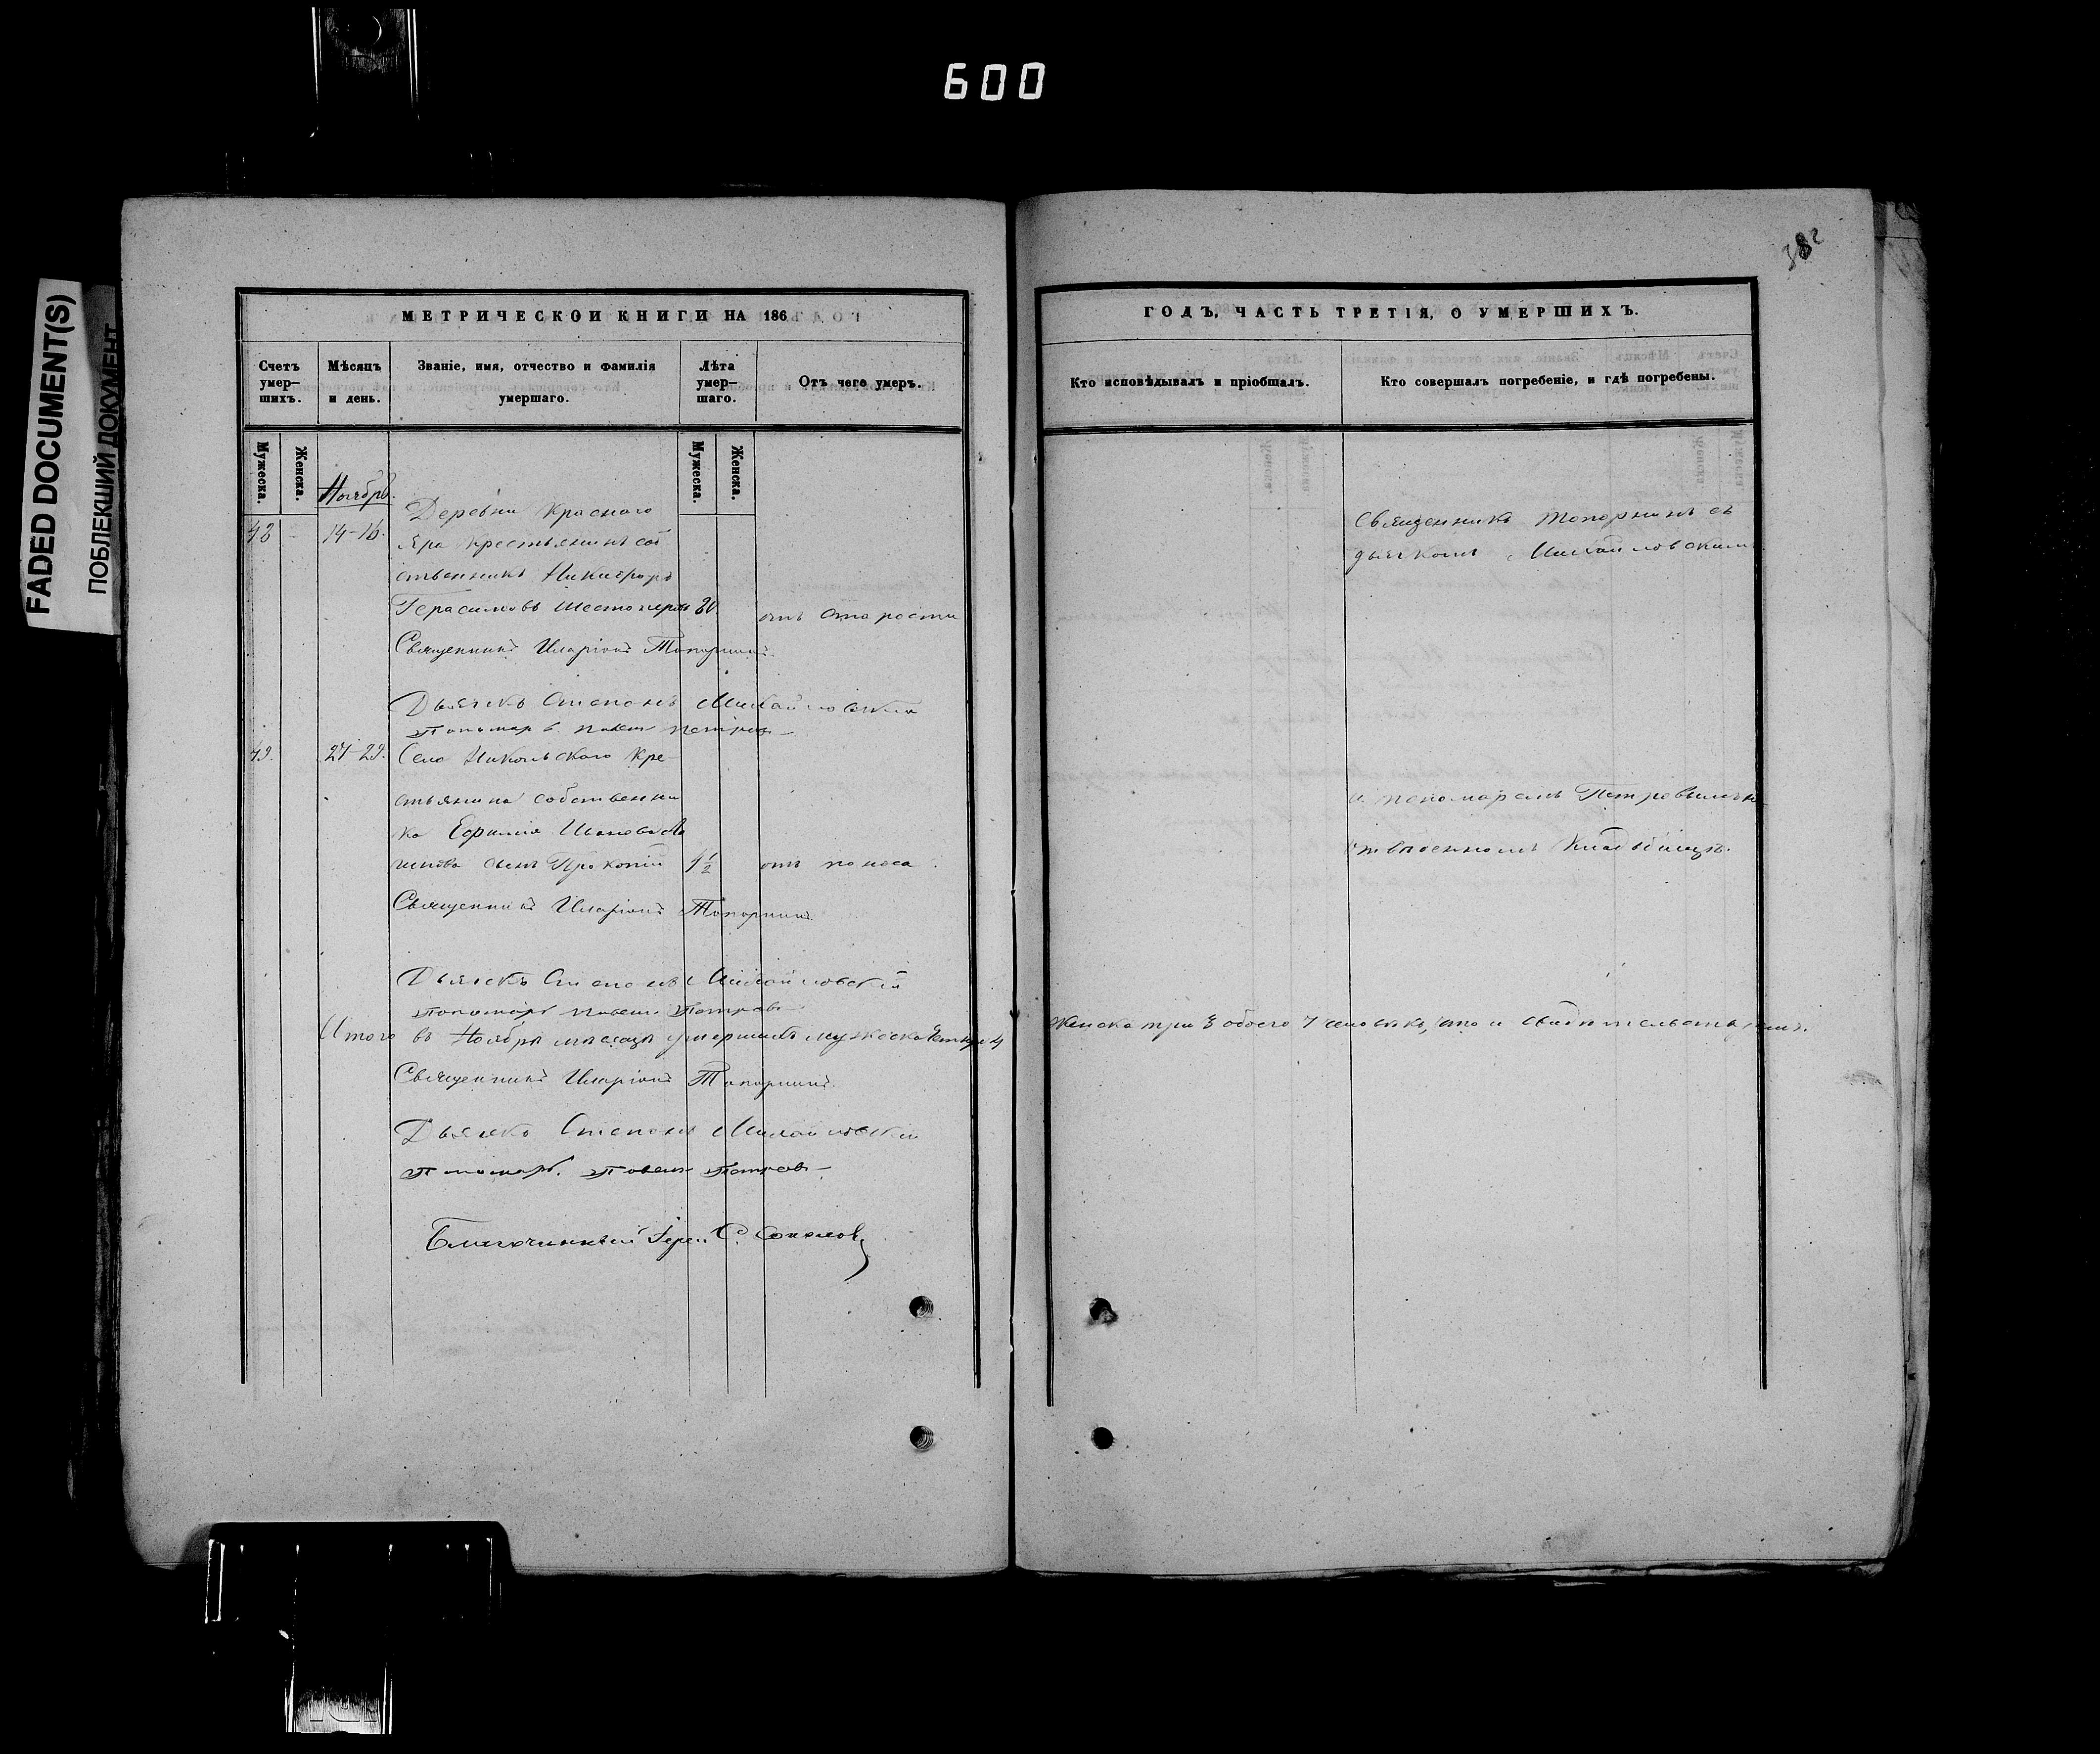 600
382
FADED DOCUMENT(S)
ПОБЛЕКШИЙ ДОКУМЕНТ
МЕТРИЧЕСКОЙ КНИГИ НА 186
Счетъ умер-
шихъ.
Мѣсяцъ
и день.
Званіе, имя, отчество и фамилія
умершаго.
Лѣта
умер-
шаго.
Отъ чего умеръ.
Мужеска.
Женска.
Мужеска.
Женска.
Ноябрь.
Деревни Красного
48 - 14-16. Яра крестьянинъ соб
ственникъ Никифоръ
Герасимовъ 80 отъ старости
Священникъ Иларіонъ Топорнинъ.
Дьячекъ Степанъ Михайловскій
Пономарь Павелъ Петровъ
49. 27-29. Села Никольского кре-
стьянина собственни
ка Ефимія Иванова
сынъ Прокопій 1/2 отъ поноса.
Священникъ Иларіонъ Топорнинъ.
Дьячекъ Степанъ Михайловскій
Пономарь Павелъ Петровъ
Итого въ Ноябрѣ мѣсяцѣ умершихъ мужеска четыре 4
Священникъ Иларіонъ Топорнинъ.
Дьячекъ Степанъ Михайловскій
Пономарь. Павелъ Петровъ
Благочинный Іерей С. Соколовъ
ГОДЪ, ЧАСТЬ ТРЕТІЯ, О УМЕРШИХЪ.
Кто исповѣдывалъ и пріобщалъ.
Кто совершалъ погребеніе, и гдѣ погребены.
Священникъ Топорнинъ съ
дьячкомъ Михайловскимъ
и пономаремъ Петровымъ на
кладбищѣ.
Женска три 3 обоего 7 человѣкъ, что и свидѣтельствуемъ.